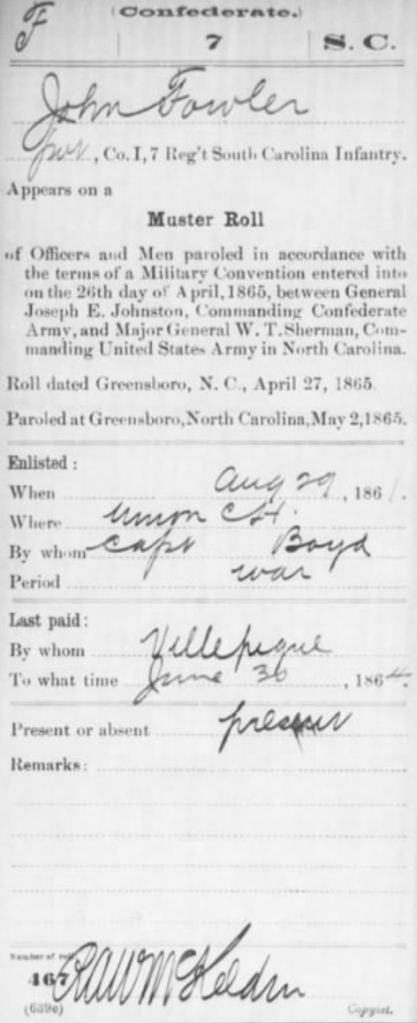 F
(Confederate.)
7 | S. C.
John Fowler
Pvt, Co. I, 7 Reg't South Carolina Infantry.
Appears on a
Muster Roll
of Officers and Men paroled in accordance with
the terms of a Military Convention entered into
on the 26th day of April, 1865, between General
Joseph E. Johnston, Commanding Confederate
Army, and Major General W. T. Sherman, Com-
manding United States Army in North Carolina.
Roll dated Greensboro, N. C., April 27, 1865.
Paroled at Greensboro, North Carolina, May 2, 1865.
Enlisted:
When Aug 29, 1861.
Where Union C.H.
By whom Capt Boyd
Period war
Last paid:
By whom Villepigue
To what time June 30, 1864.
Present or absent present
Remarks:
Number of roll:
467 R A W McKeldin
(639e) Copyist.